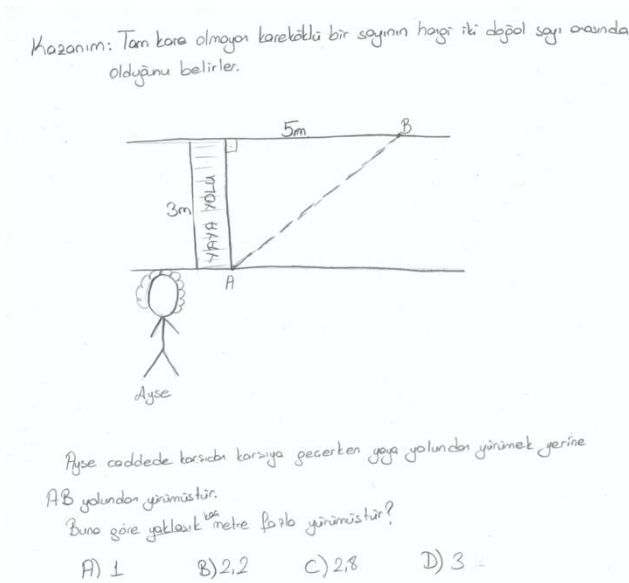 Kazanım: Tam kare olmayan kareköklü bir sayının hangi iki doğal sayı arasında
olduğunu belirler.
5m
B
3m
YAYA YOLU
A
Ayse
Ayşe caddede karşıdan karşıya geçerken yaya yolundan yürümek yerine
AB yolundan yürümüştür.
Buna göre yaklaşık kaç metre fazla yürümüştür?
A) 1 B) 2,2 C) 2,8 D) 3